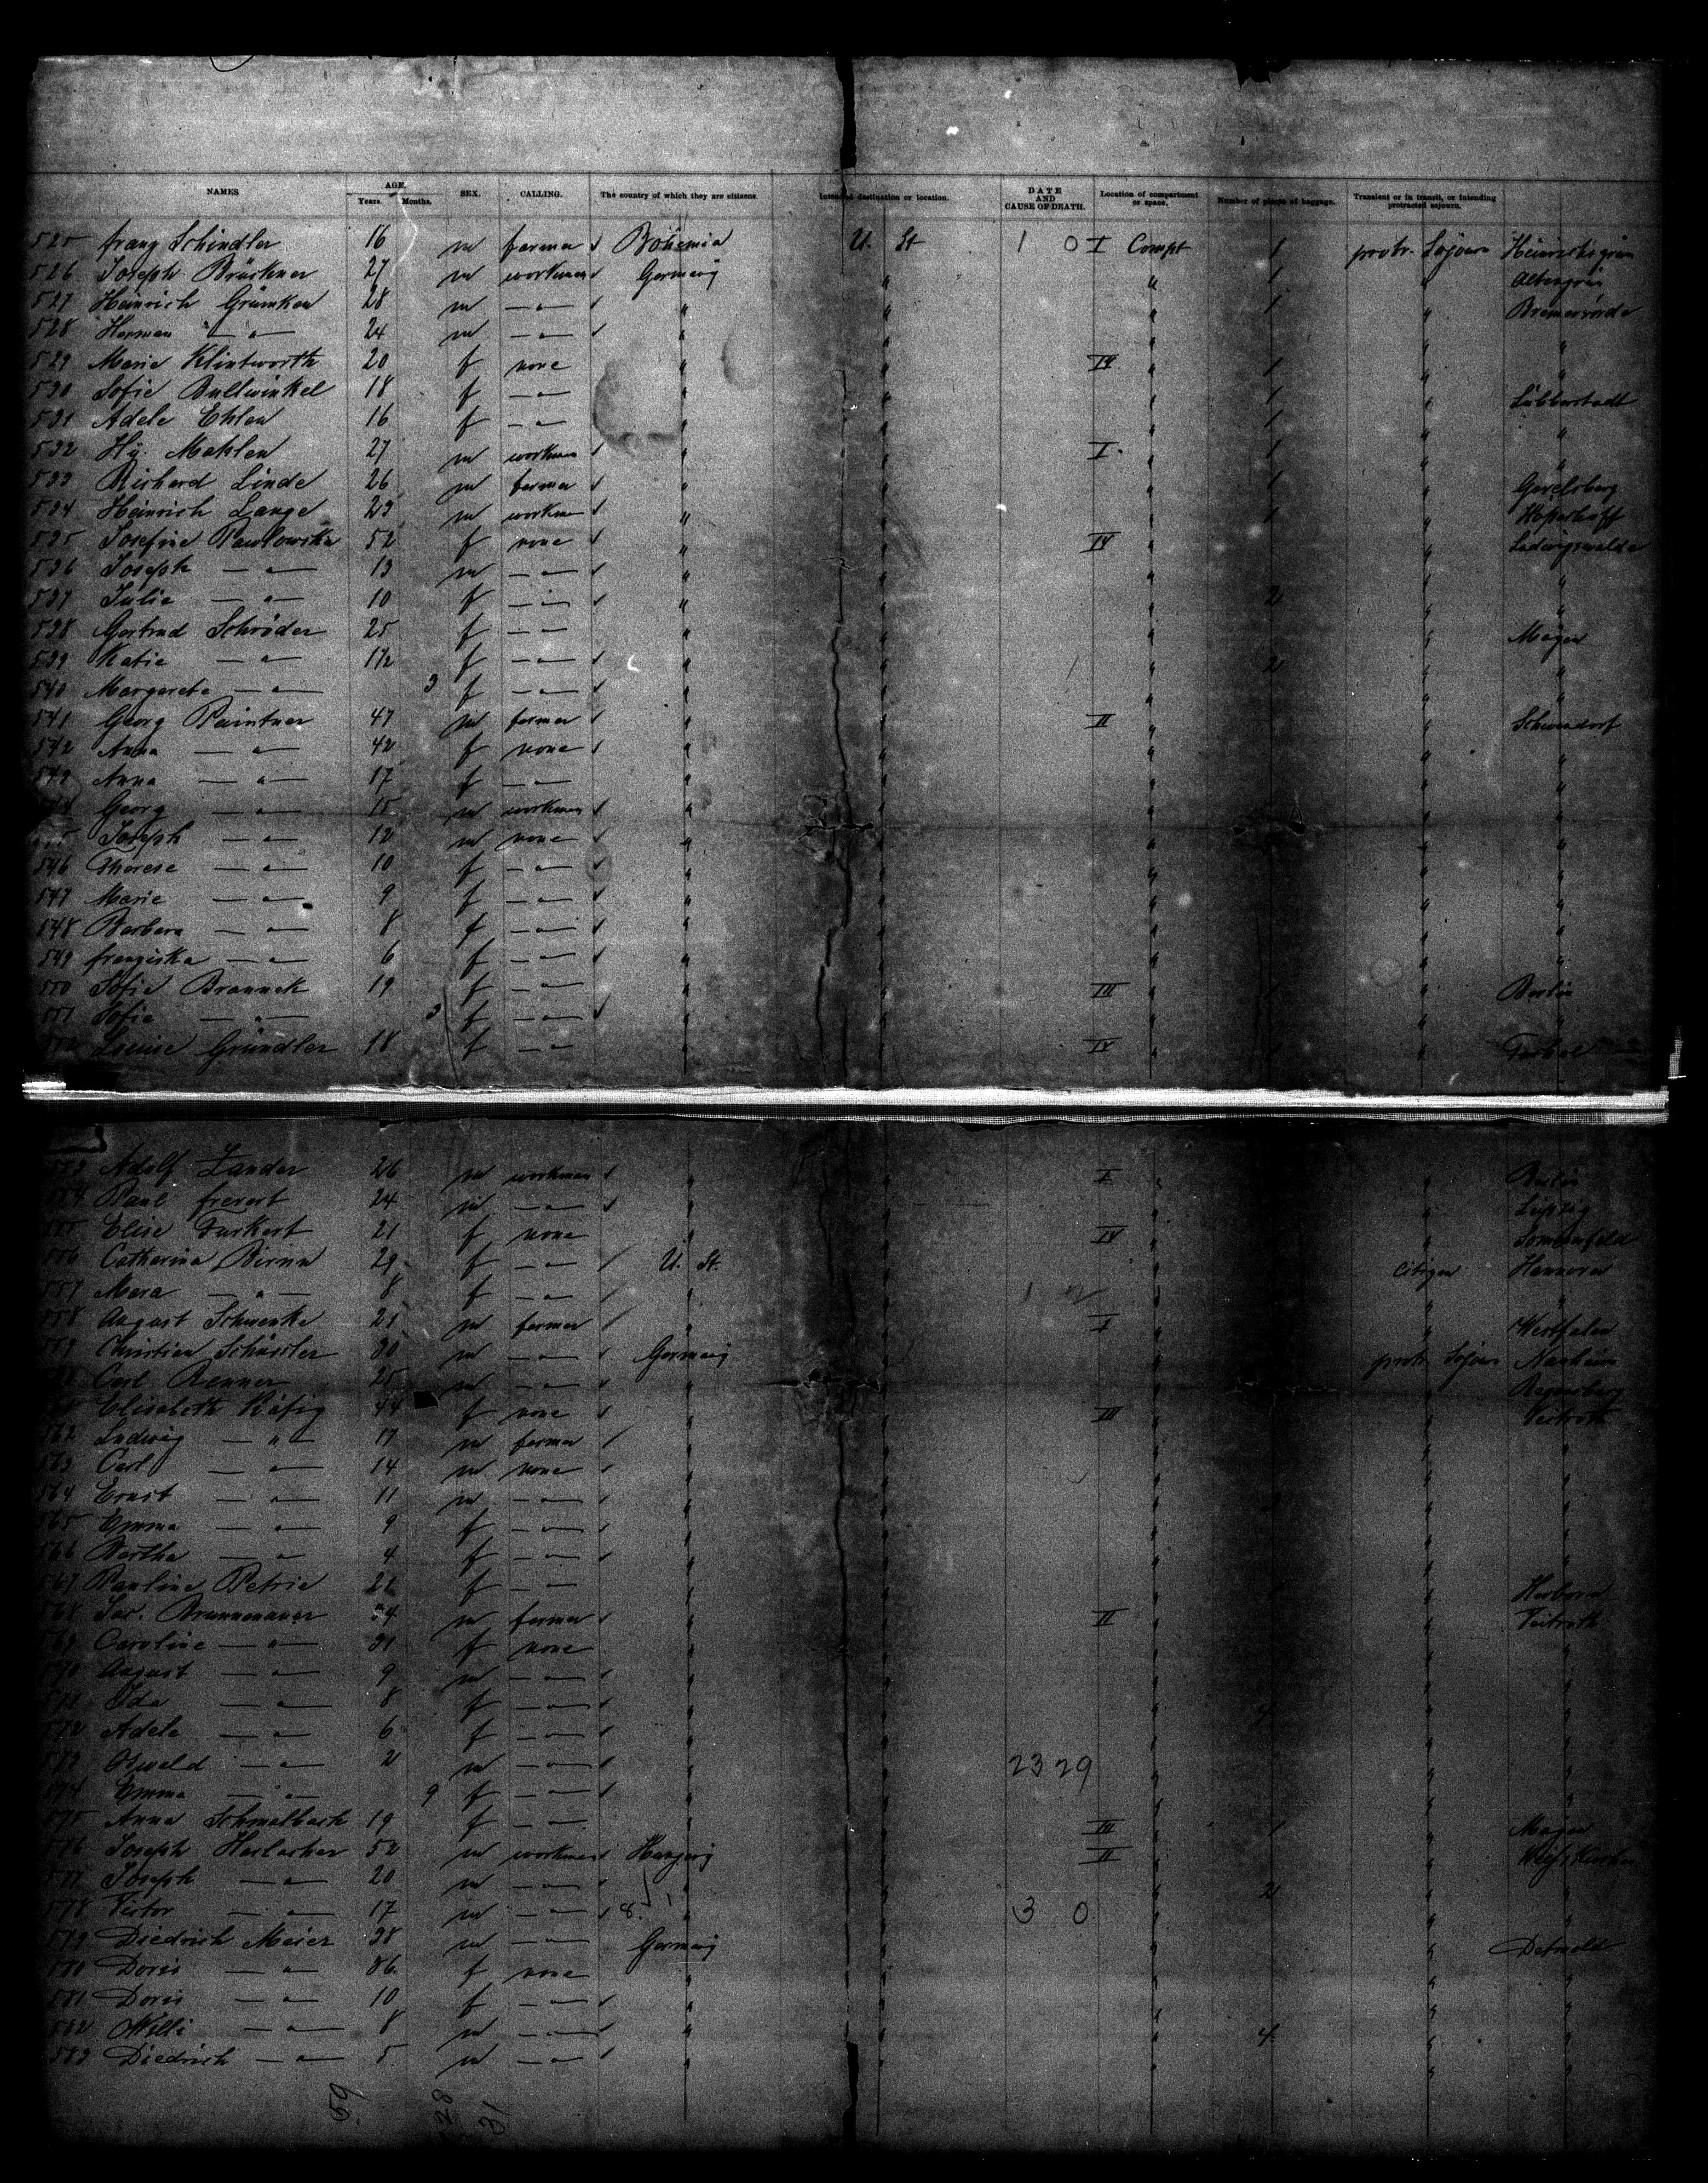 NAMES AGE. Years. Months. SEX. CALLING. The country of which they are citizens. Intended destination or location. DATE AND CAUSE OF DEATH. Location of compartment or space. Number of pieces of baggage. Transient or in transit, or intending protracted sojourn.
525 Franz Schindler 16 m farmer Bohemia U. St 1 0 I Compt 1 protr. Sojourn
526 Joseph Brückner 27 m workman Germany " " 1 "
527 Heinrich Grümken 28 m —"— " " " 1 " Bremervörde
528 Herman —"— 24 m —"— " " " " "
529 Marie Klintworth 20 f none " " IV " 1 " "
530 Sofie Bullwinkel 18 f —"— " " " 1 " Lübberstedt
531 Adele Ehlen 16 f —"— " " " 1 " "
532 Hy. Mahlen 27 m workman " " I. " 1 " "
533 Richard Linde 26 m farmer " " " 1 " Gevelsberg
534 Heinrich Lange 23 m workman " " " 1 "
535 Josefine Pawlowska 52 f none " " IV " " Ludwigswalde
536 Joseph —"— 13 m —"— " " " " "
537 Julie —"— 10 f —"— " " " 2 " "
538 Gertrud Schröder 25 f —"— " " " " Mayen
539 Katie —"— 1½ f —"— " " " 2 " "
540 Margarete —"— 3 f —"— " " " " "
541 Georg Paintner 47 m farmer " " II " " Schwandorf
542 Anna —"— 42 f none " " " " "
543 Anna —"— 17 f —"— " " " " "
Georg —"— 15 m workman " " " " "
Joseph —"— 12 m none " " " " "
546 Therese —"— 10 f —"— " " " " "
547 Marie —"— 9 f —"— " " " " "
548 Barbara —"— 8 f —"— " " " " "
549 Franziska —"— 6 f —"— " " " " "
550 Sofie Brannek 19 f —"— " " III " 1 " Berlin
551 Sofie —"— 3 f —"— " " " " "
552 Louise Gründler 18 f —"— " " IV " 1 "
553 Adolf Zander 26 m workman " " I " " Berlin
554 Paul Frevert 24 m —"— " " " " Leipzig
555 Elise Furkert 21 f none " " IV " " Sommerfeld
556 Catharina Birnn 29 f —"— U. St. " " Citizen Hannover
557 Mera —"— 8 f —"— " " " " "
558 August Schwenke 21 m farmer " " I " " Westfalen
559 Christian Schüssler 30 m —"— Germany " " protr Sojourn Nauheim
Carl Renner 25 m —"— " " " "
Elisabeth Käfig 44 f none " " III " " Veitroth
562 Ludwig —"— 17 m farmer " " " " "
563 Carl —"— 14 m none " " " " "
564 Ernst —"— 11 m —"— " " " " "
565 Emma —"— 9 f —"— " " " " "
566 Bertha —"— 4 f —"— " " " " "
567 Pauline Petrie 21 f —"— " " " " Herborn
568 Jac. Brunnenauer 34 m farmer " " II " " Veitroth
569 Caroline —"— 31 f none " " " " "
570 August —"— 9 m —"— " " " " "
571 Ida —"— 8 f —"— " " " 4 " "
572 Adele —"— 6 f —"— " " " " "
573 Oswald —"— 2 m —"— " " 23 29 " " "
574 Emma —"— 9 f —"— " " " " "
575 Anna Schmalbach 19 f —"— " " III " 1 " Mayen
576 Joseph Harlacher 52 m workman Hungary " II " " Weisskirchen
577 Joseph —"— 20 m —"— " " " 2 " "
578 Victor —"— 17 m —"— " " 3 0 " " "
579 Diedrich Meier 38 m —"— Germany " " " Detmold
580 Doris —"— 36 f none " " " " "
581 Doris —"— 10 f —"— " " " " "
582 Willi —"— 8 m —"— " " " 4 " "
583 Diedrich —"— 5 m —"— " " " " "
59 28 31